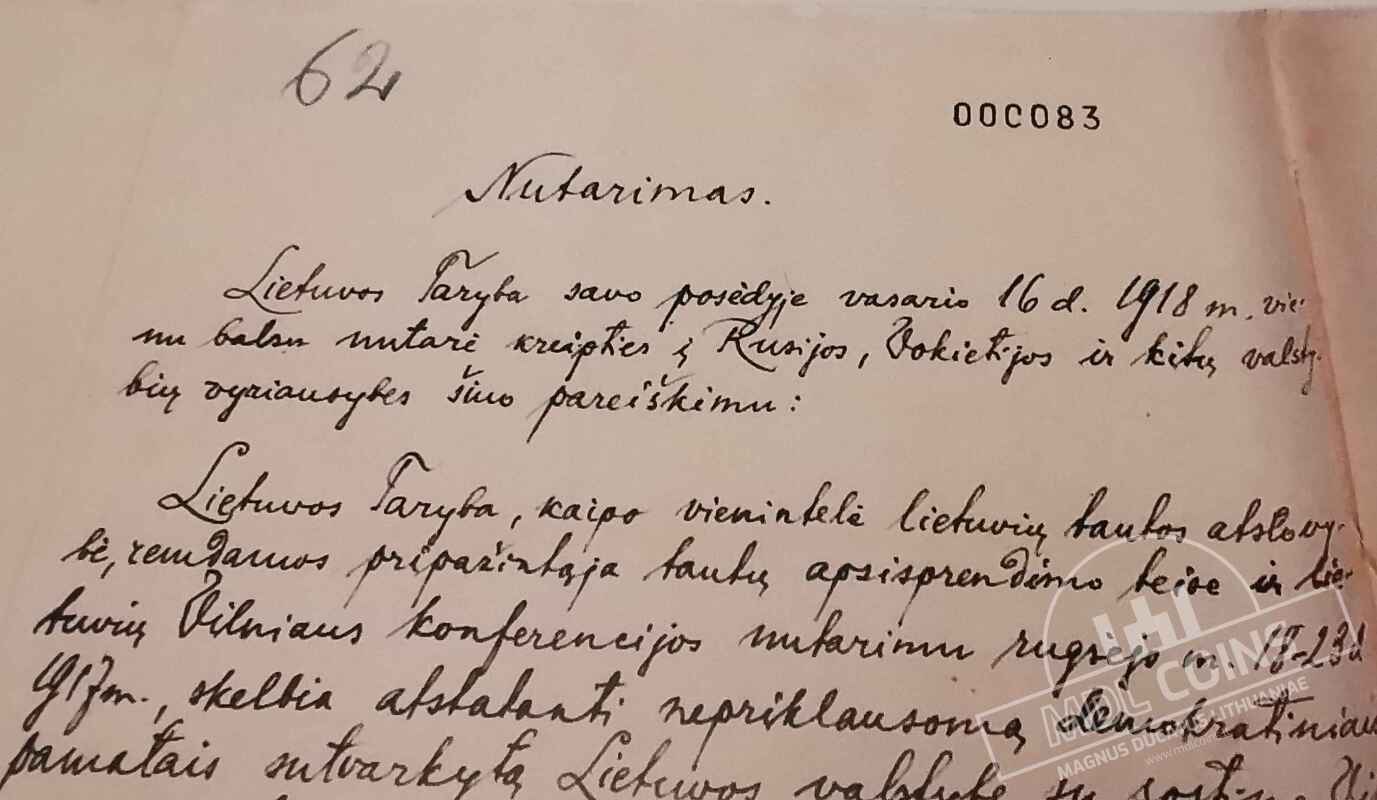 62
000083
Nutarimas.
Lietuvos Taryba savo posėdyje vasario 16 d. 1918 m. vie-
nu balsu nutarė kreipties į Rusijos, Vokietijos ir kitų valsty-
bių vyriausybes šiuo pareiškimu:
Lietuvos Taryba, kaipo vienintelė lietuvių tautos atstovy-
bė, remdamos pripažintąja tautų apsisprendimo teise ir lie-
tuvių Vilniaus konferencijos nutarimu rugsėjo m. 18-23 d
1917 m., skelbia atstatanti nepriklausomą demokratiniais
pamatais sutvarkytą Lietuvos valstybę su
MDL COINS
MAGNUS DUCATUS LITHUANIAE